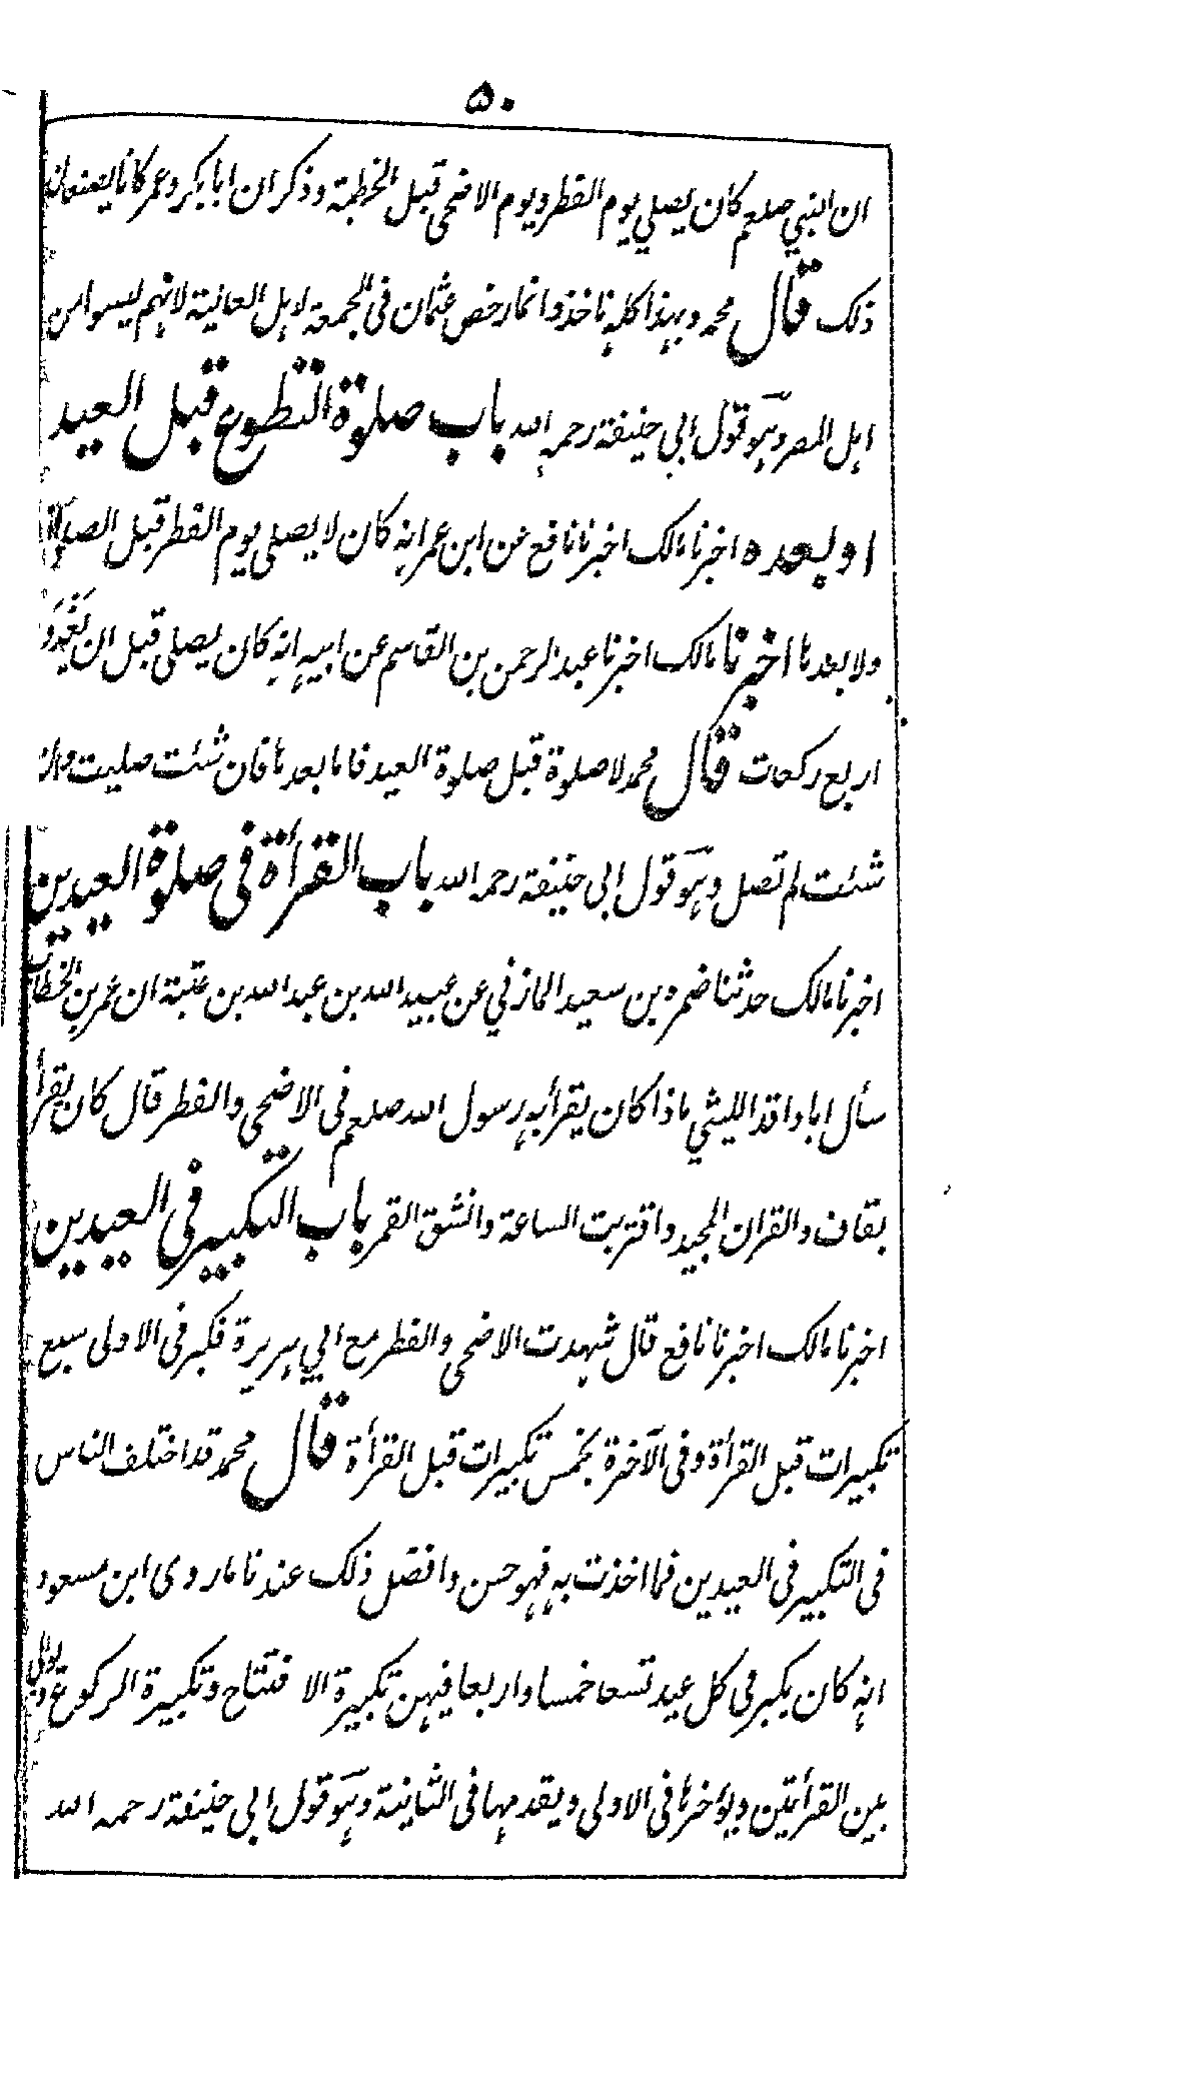 ۵۰
ان النبي صلعم كان يصلي يوم الفطر ويوم الاضحى قبل الخطبة وذكر ان ابا بكر وعمر كانا يصنعان
ذلك قال محمد وبهذا كله ناخذ وانما رخص عثمان فى الجمعة لاهل العالية لانهم ليسوا من
اهل المصر وهو قول ابي حنيفة رحمه الله باب صلوة التطوع قبل العيد
او بعده اخبرنا مالك اخبرنا نافع عن ابن عمر انه كان لا يصلى يوم الفطر قبل الصلوة
ولا بعدها اخبرنا مالك اخبرنا عبد الرحمن بن القاسم عن ابيه انه كان يصلى قبل ان يَغْدُوَ
اربع ركعات قال محمد لا صلوة قبل صلوة العيد فاما بعدها فان شئت صليت وان
شئت لم تصل وهو قول ابى حنيفة رحمه الله باب القرأة فى صلوة العيدين
اخبرنا مالك حدثنا ضمرة بن سعيد المازني عن عبيد الله بن عبد الله بن عتبة ان عمر بن الخطاب
سأل ابا واقد الليثي ماذا كان يقرأ به رسول الله صلعم فى الاضحى والفطر قال كان يقرأ
بقاف والقران المجيد واقتربت الساعة وانشق القمر باب التكبير فى العيدين
اخبرنا مالك اخبرنا نافع قال شهدت الاضحى والفطر مع ابي هريرة فكبر فى الاولى سبع
تكبيرات قبل القرأة وفى الآخرة بخمس تكبيرات قبل القرأة قال محمد قد اختلف الناس
فى التكبير فى العيدين فما اخذت به فهو حسن وافضل ذلك عندنا ما روى ابن مسعود
انه كان يكبر في كل عيد تسعا خمسا واربعا فيهن تكبيرة الافتتاح وتكبيرة الركوع ويوالى
بين القرأتين ويواخرها فى الاولى ويقدمها فى الثانية وهو قول ابى حنيفة رحمه الله